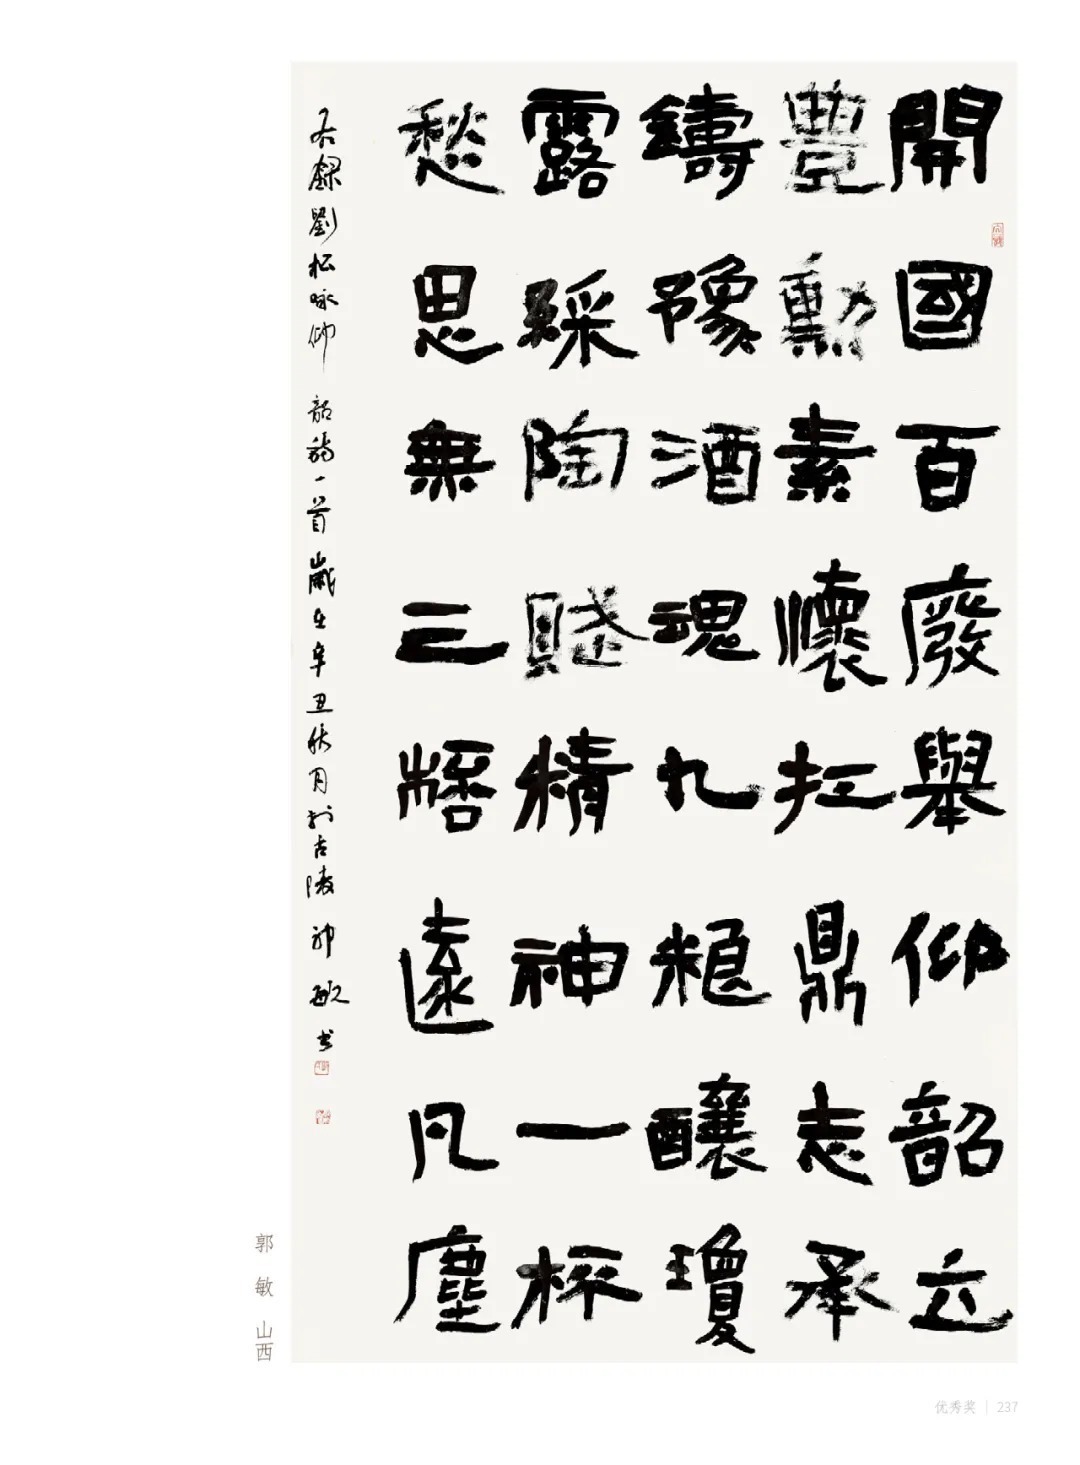 開國百廢舉仰韶立
豐勲素懷扛鼎志承
鑄豫酒魂九粮釀瓊
露綵陶賦精神一杯
愁思無三遠凡塵
右録劉松咏仰韶詩一首歲在辛丑秋月於古陵郭敏书
郭敏 山西
优秀奖 | 237